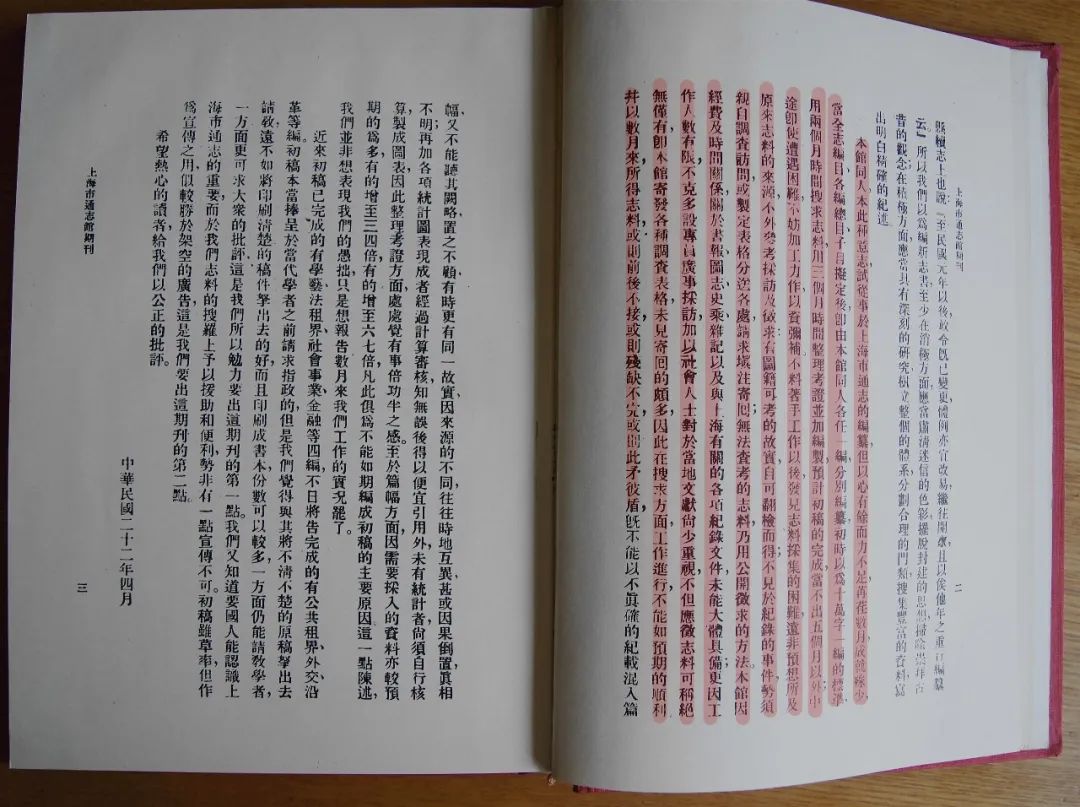 上海市通志館期刊
二
縣續志上也說：『至民國元年以後政令旣已變更體例亦宜改易纖往開來且以俟他年之重訂編纂
云』所以我們以爲編新志書至少在消極方面應當肅淸迷信的色彩擺脫封建的思想掃除崇拜古
昔的觀念在積極方面應當具有深刻的硏究樹立整個的體系分劃合理的門類搜集豐富的資料寫
出明白精確的紀述
本館同人本此種意志試從事於上海市通志的編纂但以心有餘而力不足再荏數月成就殊少
當全志編目各編總目子目擬定後卽由本館同人各任一編分別編纂初時以爲十萬字一編的標準
用兩個月時間搜求志料用三個月時間整理考證並加編製預計初稿的完成當不出五個月以外中
途卽使遭遇困難不妨加工力作以資彌補。不料著手工作以後發見志料採集的困難遠非預想所及
原來志料的來源不外參考採訪及徵求有圖籍可考的故實自可翻檢而得；不見於紀錄的事件勢須
親自調査訪問或製定表格分送各處請求塡注寄囘；無法查考的志料乃用公開徵求的方法。本館因
經費及時間關係關於書報圖志史乘雜記以及與上海有關的各項紀錄文件未能大體具備；更因工
作人數有限不克多設專員廣事採訪加以社會人士對於當地文獻尙少重視不但應徵志料可稱絕
無僅有，卽本館寄發各種調查表格未見寄囘的頗多。因此在搜求方面工作進行不能如預期的順利
幷以數月來所得志料或則前後不接或則殘缺不完或則此矛彼盾旣不能以不眞確的紀載混入篇
幅又不能聽其闕略置之不顧有時更有同一故實因來源的不同往往時地互異甚或因果倒置眞相
不明再加各項統計圖表現成者經過計算審核知無誤後得以便宜引用外未有統計者尙須自行核
算製成圖表因此整理考證方面處處覺有事倍功半之感。至於篇幅方面因需要採入的資料亦較預
期的爲多有的增至三四倍有的增至六七倍凡此俱爲不能如期編成初稿的主要原因這一點陳述
我們並非想表現我們的愚拙只是想報告數月來我們工作的實況罷了。
近來初稿已完成的有學藝、法租界、社會事業、金融等四編不日將告完成的有公共租界、外交沿
革等編。初稿本當捧呈於當代學者之前請求指政的但是我們覺得與其將不淸不楚的原稿拏出去
請敎遠不如將印刷淸楚的稿件拏出去的好而且印刷成書本份數可以較多一方面仍能請敎學者，
一方面更可求大衆的批評這是我們所以勉力要出這期刊的第一點。我們又知道要國人能認識上
海市通志的重要而於我們志料的搜羅上予以援助和便利勢非有一點宣傳不可。初稿雖草率但作
爲宣傳之用似較勝於架空的廣告這是我們要出這期刊的第二點。
希望熱心的讀者給我們以公正的批評。
中華民國二十二年四月
上海市通志館期刊
三